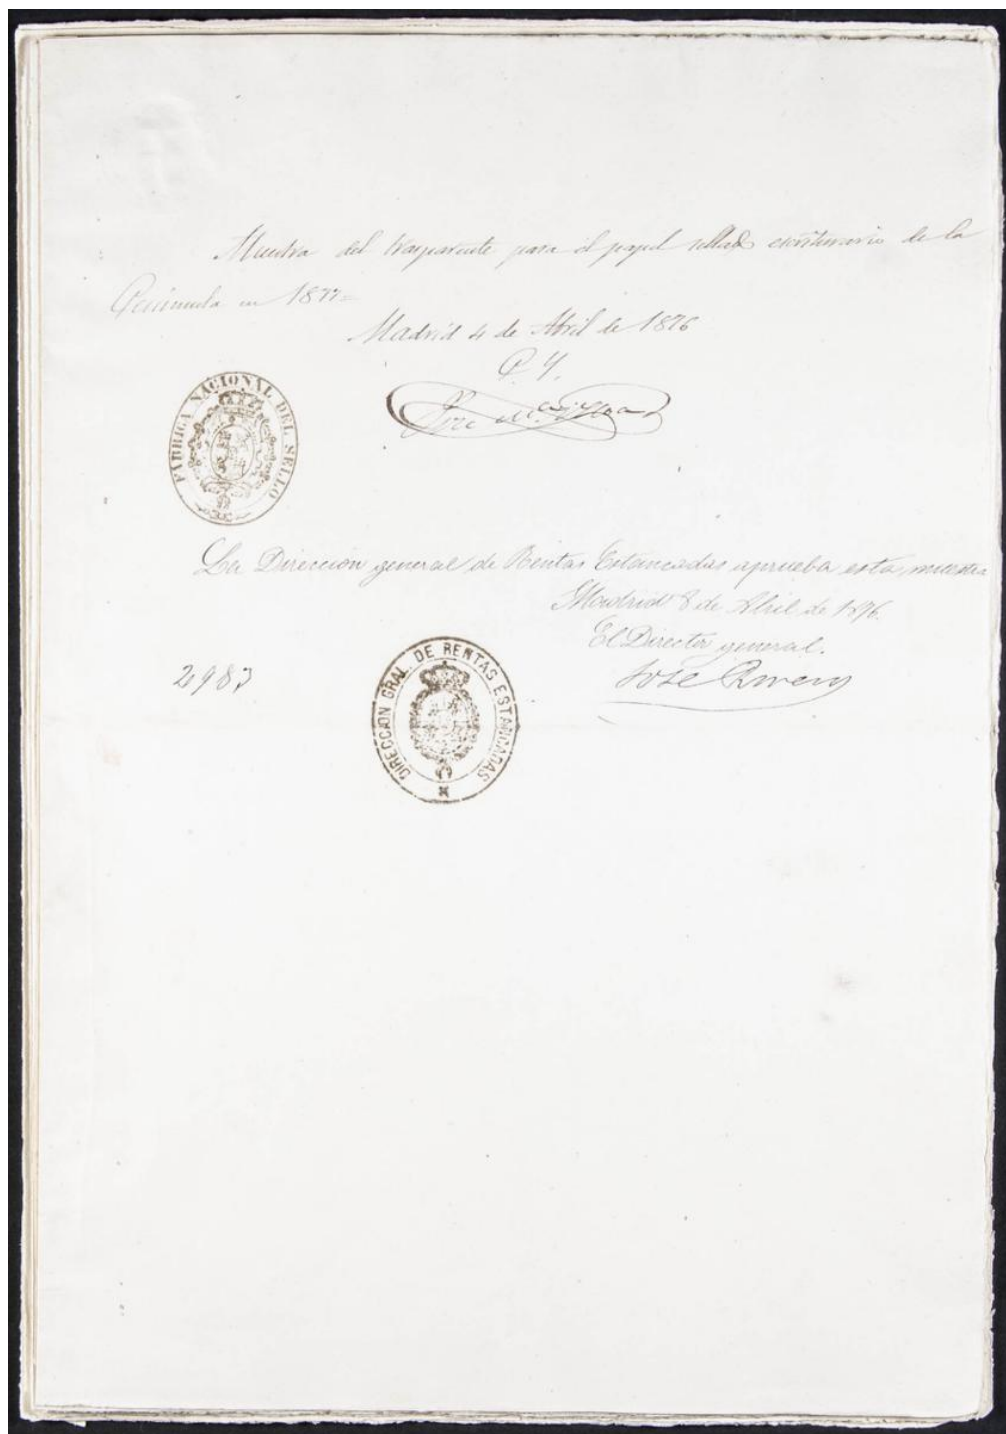 Muestra del trasparente para el papel sellado escriturario de la
Peninsula en 1877=
Madrid 4 de Abril de 1876
P. Y.
FABRICA NACIONAL DEL SELLO
La Dirección general de Rentas Estancadas aprueba esta muestra
Madrid 8 de Abril de 1876.
El Director general.
2983
José Rivero
DIRECCION GRAL. DE RENTAS ESTANCADAS